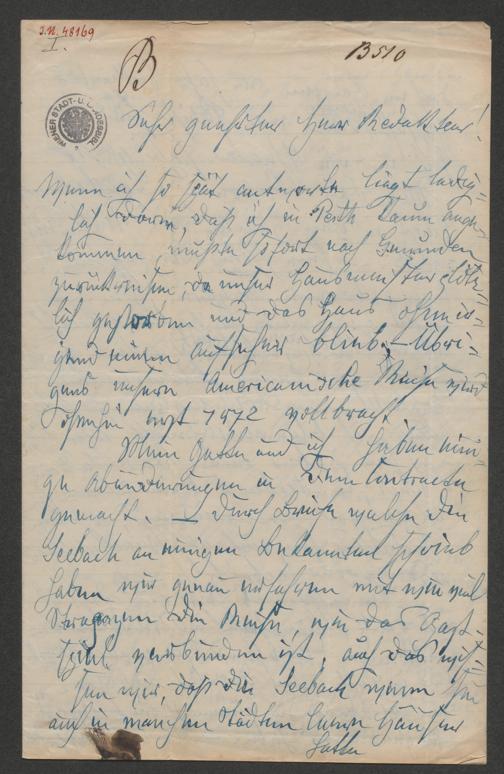 J.N. 48169
I.
B
B510
WIENER STADT- U. LANDESBIBL.
Sehr geehrter Herr Redakteur!
Wenn ich so spät antworte liegt ledig-
lich daran, daß ich in Pesth kaum ange-
kommen, mußte sofort nach Gmunden
zurückreisen, da unser Hausmeister plötz-
lich gestorben und das Haus ohne ir-
gend einen Aufseher blieb. – Übri-
gens unsere Americanische Reise wird
ohnehin erst 1872 vollbracht.
Mein Gatte und ich haben eini-
ge Abänderungen in dem Contracte
gemacht. – Durch Briefe welche die
Seebach an einigen Bekannten schrieb
haben wir genau erfahren mit wie viel
Strapazen die Reise, wie das Gast-
spiel verbunden ist, auch das wis-
sen wir, daß die Seebach
auch in manchen Städten leere Häuser
hatte